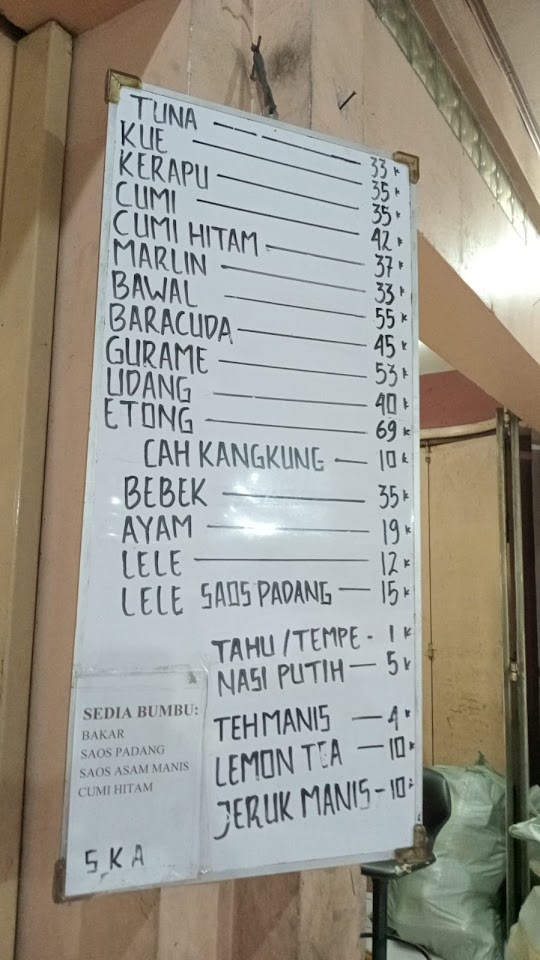 TUNA — — — 33 k
KUE — 35 k
KERAPU — 35 k
CUMI — 42 k
CUMI HITAM — 37 k
MARLIN — 33 k
BAWAL — 55 k
BARACUDA — 45 k
GURAME — 53 k
UDANG — 40 k
ETONG — 69 k
CAH KANGKUNG — 10 k
BEBEK — 35 k
AYAM — 19 k
LELE — 12 k
LELE SAOS PADANG — 15 k
TAHU / TEMPE - 1 k
NASI PUTIH — 5 k
TEH MANIS — 4 k
LEMON TEA — 10 k
JERUK MANIS - 10 k
SEDIA BUMBU:
BAKAR
SAOS PADANG
SAOS ASAM MANIS
CUMI HITAM
SKA